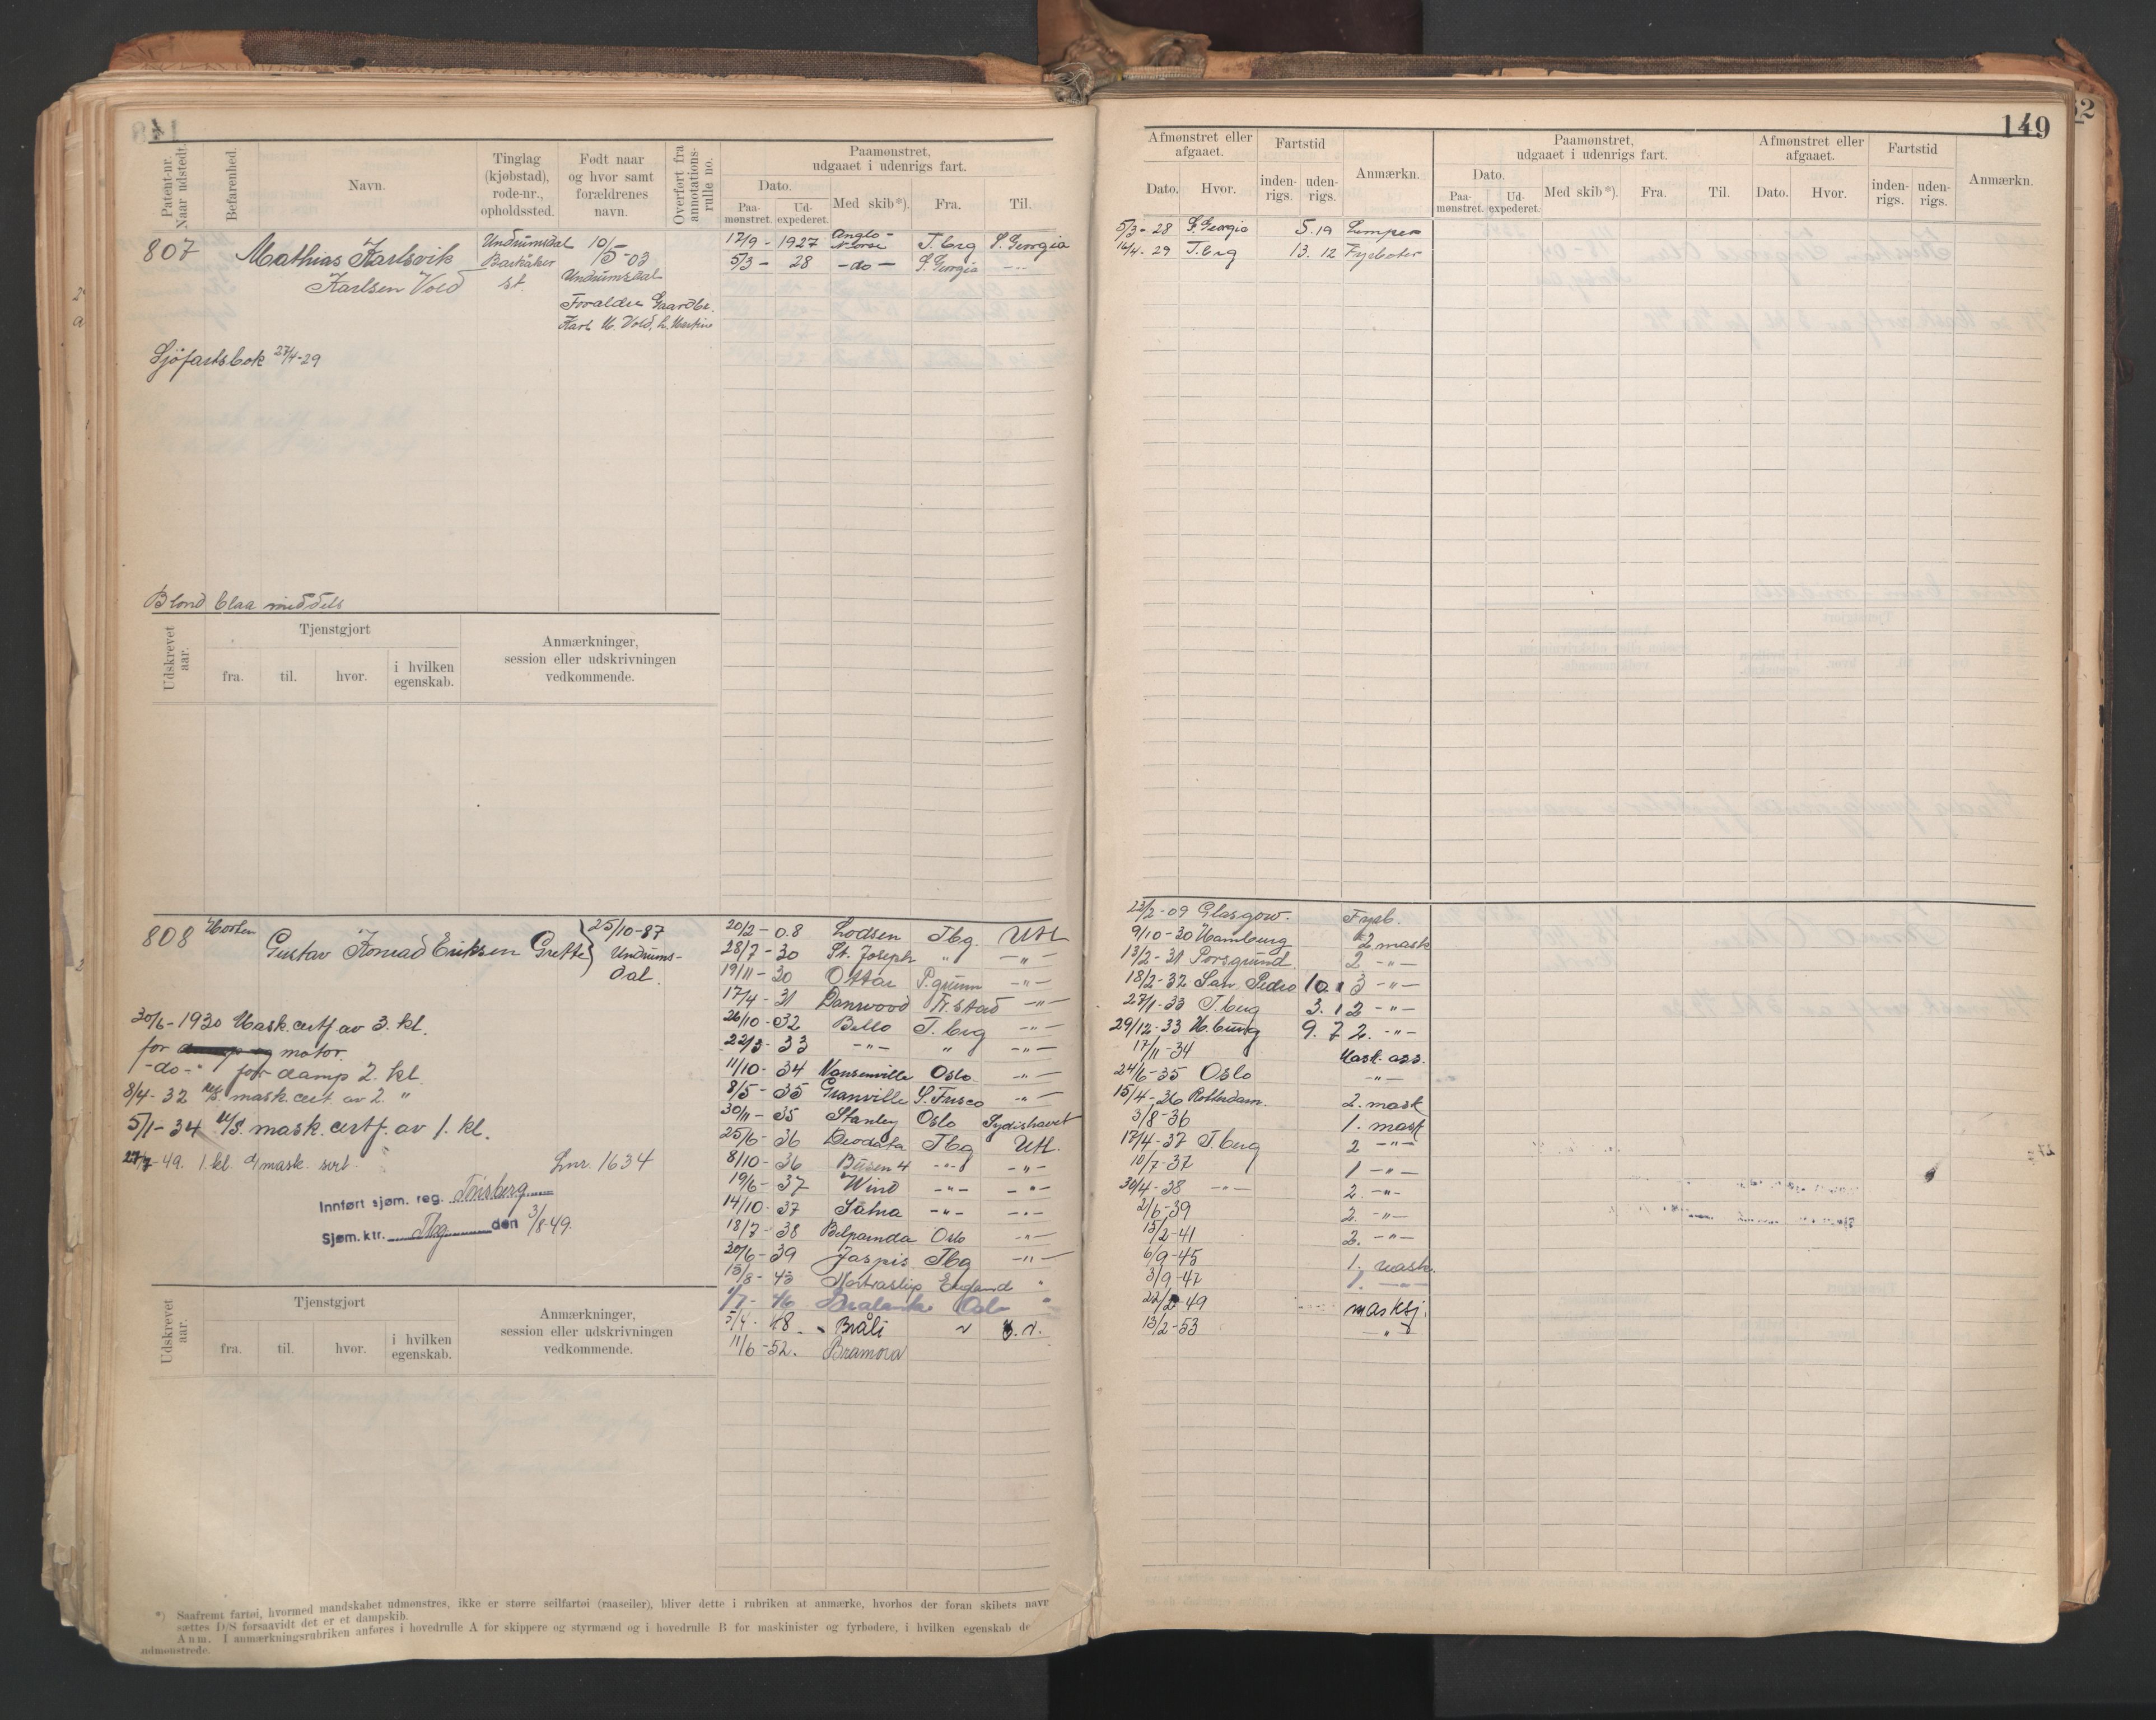 149
Patent-nr. Naar udstedt.
Befarenhed.
Navn.
Tinglag (kjøbstad), rode-nr., opholdssted.
Født naar og hvor samt forældrenes navn.
Overført fra annotations-rulle no.
Paamønstret, udgaaet i udenrigs fart.
Dato.
Paa-mønstret.
Ud-expederet.
Med skib*).
Fra.
Til.
Afmønstret eller afgaaet.
Dato.
Hvor.
Fartstid
inden-rigs.
uden-rigs.
Anmærkn.
Paamønstret, udgaaet i udenrigs fart.
Dato.
Paa-mønstret.
Ud-expederet.
Med skib*).
Fra.
Til.
Afmønstret eller afgaaet.
Dato.
Hvor.
Fartstid
inden-rigs.
uden-rigs.
Anmærkn.
807 Mathias Karlsvik
Karlsen Vold
Undrumsdal
Barkåker
st.
10/5-03
Undrumsdal
Foraldre Gaardbr.
Karl M. Vold, h. Martine
17/9 - 1927 Anglo-Norse T.berg S. Georgia
5/3 - 28 -do- S. Georgia -"-
5/3-28 S. Georgia 5.19 Lemper
16/4-29 T.brg 13.12 Fyrbøter
Sjöfartsbok 27/4-29
Blond blaa middels
Udskrevet aar.
Tjenstgjort
fra.
til.
hvor.
i hvilken egenskab.
Anmærkninger, session eller udskrivningen vedkommende.
808 Horten
Gustav Konrad Eriksen Grette } 25/10-87
Undrums-
dal.
30/6-1930 Mask.certf av 3. kl.
for motor.
-do-" for damp 2. kl.
8/4-32 m/s. mask.cert. av 2. "
5/1-34 m/s. mask. certf. av 1. kl.
27/7-49. 1. kl. d/mask. sert. Lnr. 1634
Innført sjøm. reg. Tönsberg
Sjøm. ktr. Tbg den 3/8-49.
20/2-08 Lodsen Tbg. Utl
28/7-30 St. Joseph " -"-
19/11-30 Ottar P.grunn -"-
17/4-31 Danwood Fr.stad -"-
26/10-32 Bello T.brg -"-
22/3-33 -"- " -"-
11/10-34 Nansenville Oslo -"-
8/5-35 Granville S.Frisco -"-
30/11-35 Stanley Oslo Sydishavet
25/6-36 Deodata Tbg Utl.
8/10-36 Busen 4 -"- -"-
19/6-37 Wind -"- -"-
14/10-37 Sätra -"- -"-
18/7-38 Belpamela Oslo -"-
20/6-39 Jaspis Tbg -"-
15/8-43 Nortraship England "
1/7-46 Oslo "
5/4-48 Bråli
11/6-52. Bramora
22/2-09 Glasgow. Fyrb.
9/10-30 Hamburg 2 mask
13/2-31 Porsgrund. 2 -"-
18/2-32 San Pedro 10.1 3 -"-
27/1-33 T.berg 3.1 2 -"-
29/12-33 H.burg 9.7 2. -"-
17/11-34 Mask. ass.
24/6-35 Oslo -"-
15/4-36 Rotterdam. 2. mask
3/8-36 1. mask
17/4-37 T.berg 2 -"-
10/7-37 1 -"-
30/4-38 -"- 2. -"-
2/6-39 2. -"-
15/2-41 2. -"-
6/9-45 1. mask.
3/9-47 1. -"-
22/2-49 masksj.
13/2-53 -"-
Udskrevet aar.
Tjenstgjort
fra.
til.
hvor.
i hvilken egenskab.
Anmærkninger, session eller udskrivningen vedkommende.
*) Saafremt fartøi, hvormed mandskabet udmønstres, ikke er større seilfartøi (raaseiler), bliver dette i rubriken at anmærke, hvorhos der foran skibets navn
sættes D/S forsaavidt det er et dampskib.
Anm. I anmærkningsrubriken anføres i hovedrulle A for skippere og styrmænd og i hovedrulle B for maskinister og fyrbødere, i hvilken egenskab de
udmønstrede.